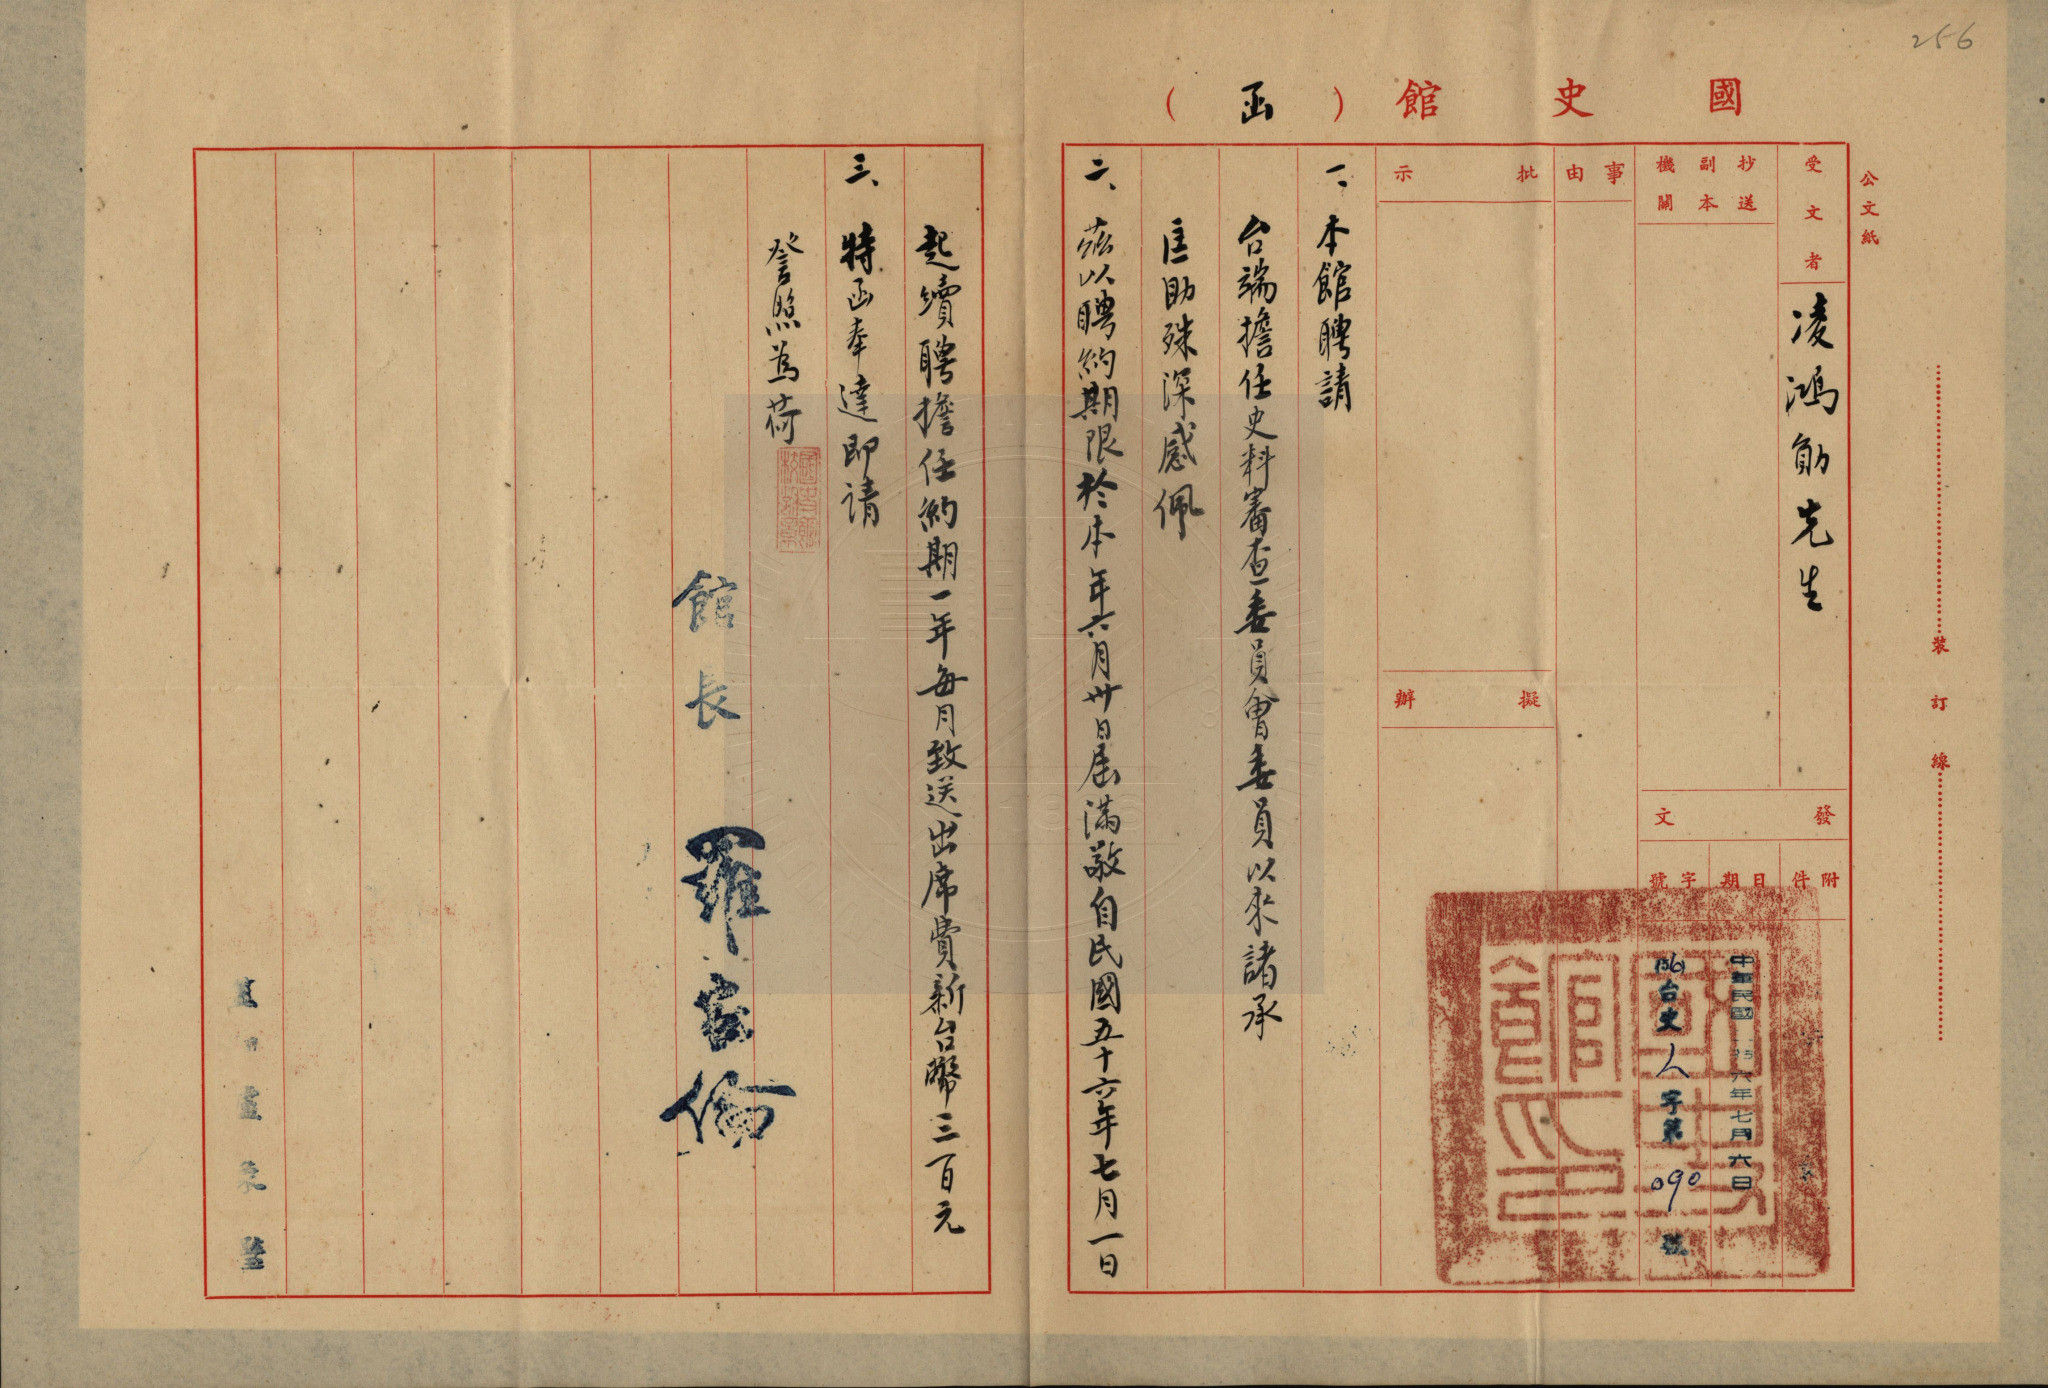 256
國史館（函）
公文紙
裝訂線
受文者
凌鴻勛先生
抄送副本機關
事由
批示
擬辦
發文
附件
日期
中華民國五六年七月六日
字號
(56)台史人字第090號
一、本館聘請
台端擔任史料審查委員會委員以來諸承
匡助殊深感佩
二、茲以聘約期限於本年六月卅日屆滿敬自民國五十六年七月一日
起續聘擔任約期一年每月致送出席費新台幣三百元
三、特函奉達即請
詧照為荷
館長 羅家倫